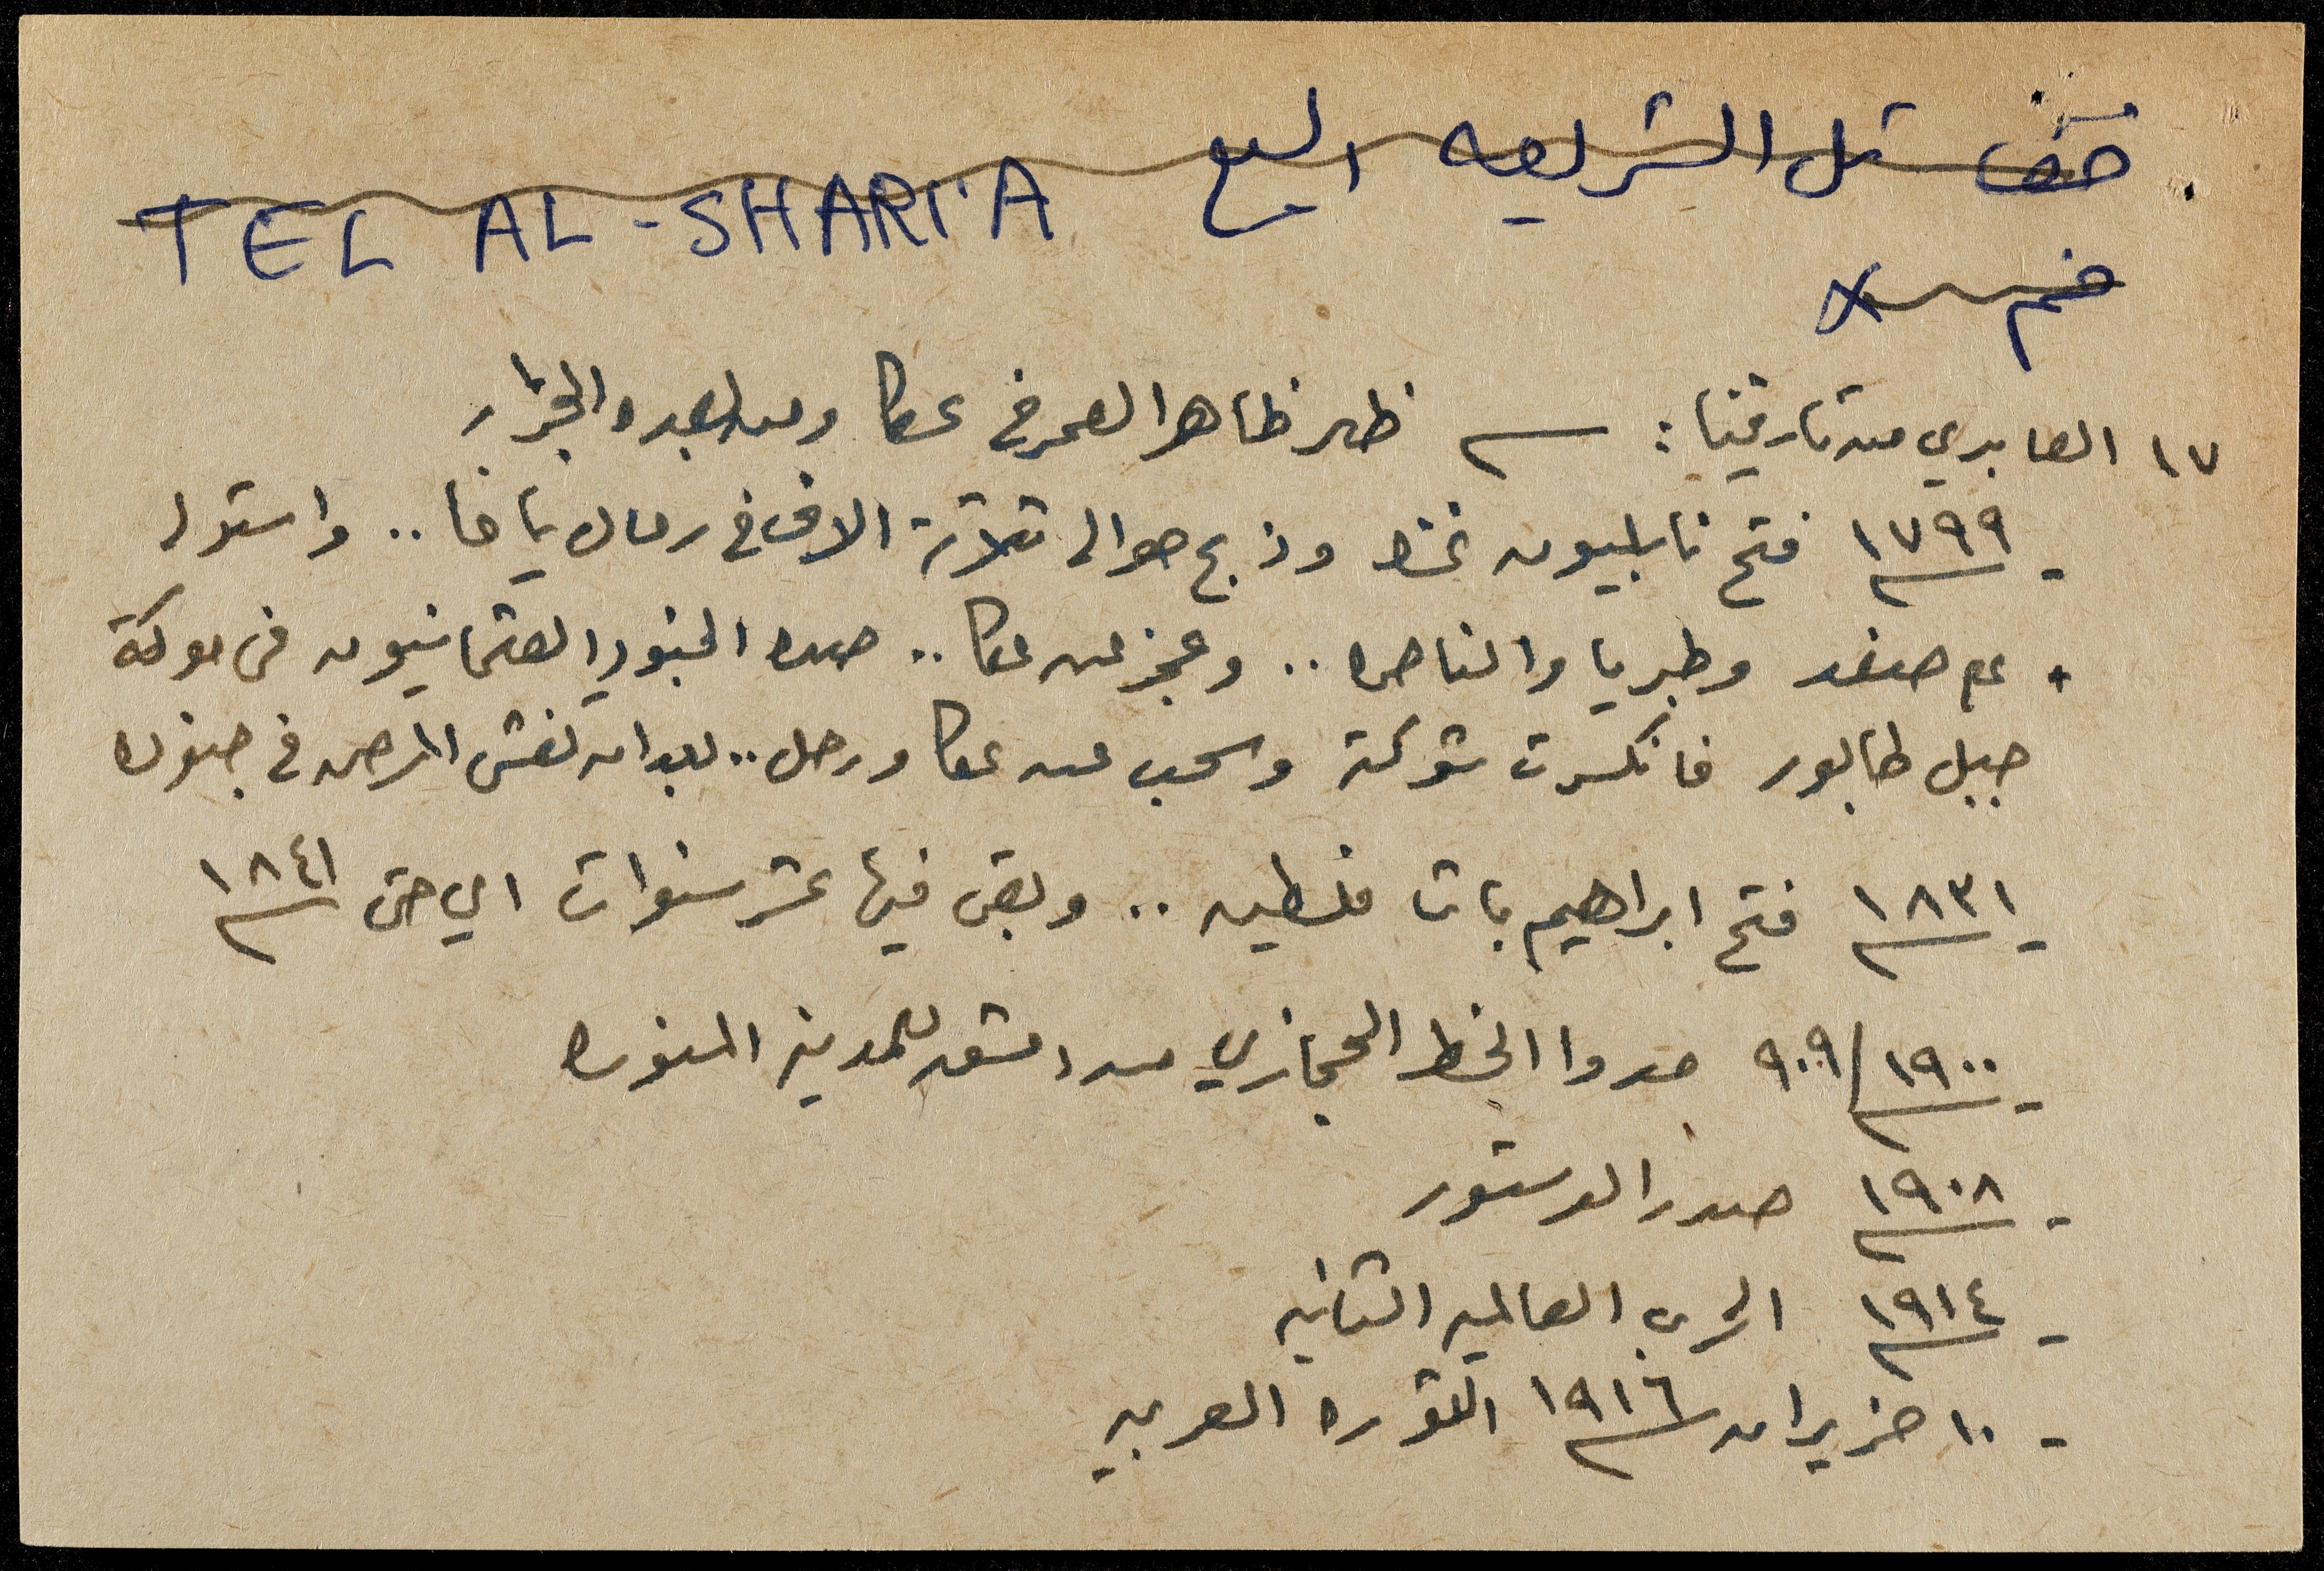 تل الشريعه السبع
TEL AL-SHARI'A
١٧ العابدي من تاريخنا: ظهر ظاهر العمر في عكا ومن بعده الجزار
- ١٧٩٩ فتح نابليون غزه وذبح حوالى ثلاثة الاف في رمال يافا .. واستولى
على صفد وطبريا والناصره .. وعجز عن عكا .. صده الجنود العثمانيون في معركة
جبل طابور فانكسرت شوكته وسحب عن عكا ورحل .. بعد ان تفشى المرض في جنوده
- ١٨٣١ فتح ابراهيم باشا فلسطين .. وبقى فيها عشر سنوات اي حتى ١٨٤١
- ١٩٠٠/٩٠٩ مدوا الخط الحجازي من دمشق للمدينه المنوره
- ١٩٠٨ صدر الدستور
- ١٩١٤ الحرب العالميه الثانيه
- ١٠ حزيران ١٩١٦ الثوره العربيه